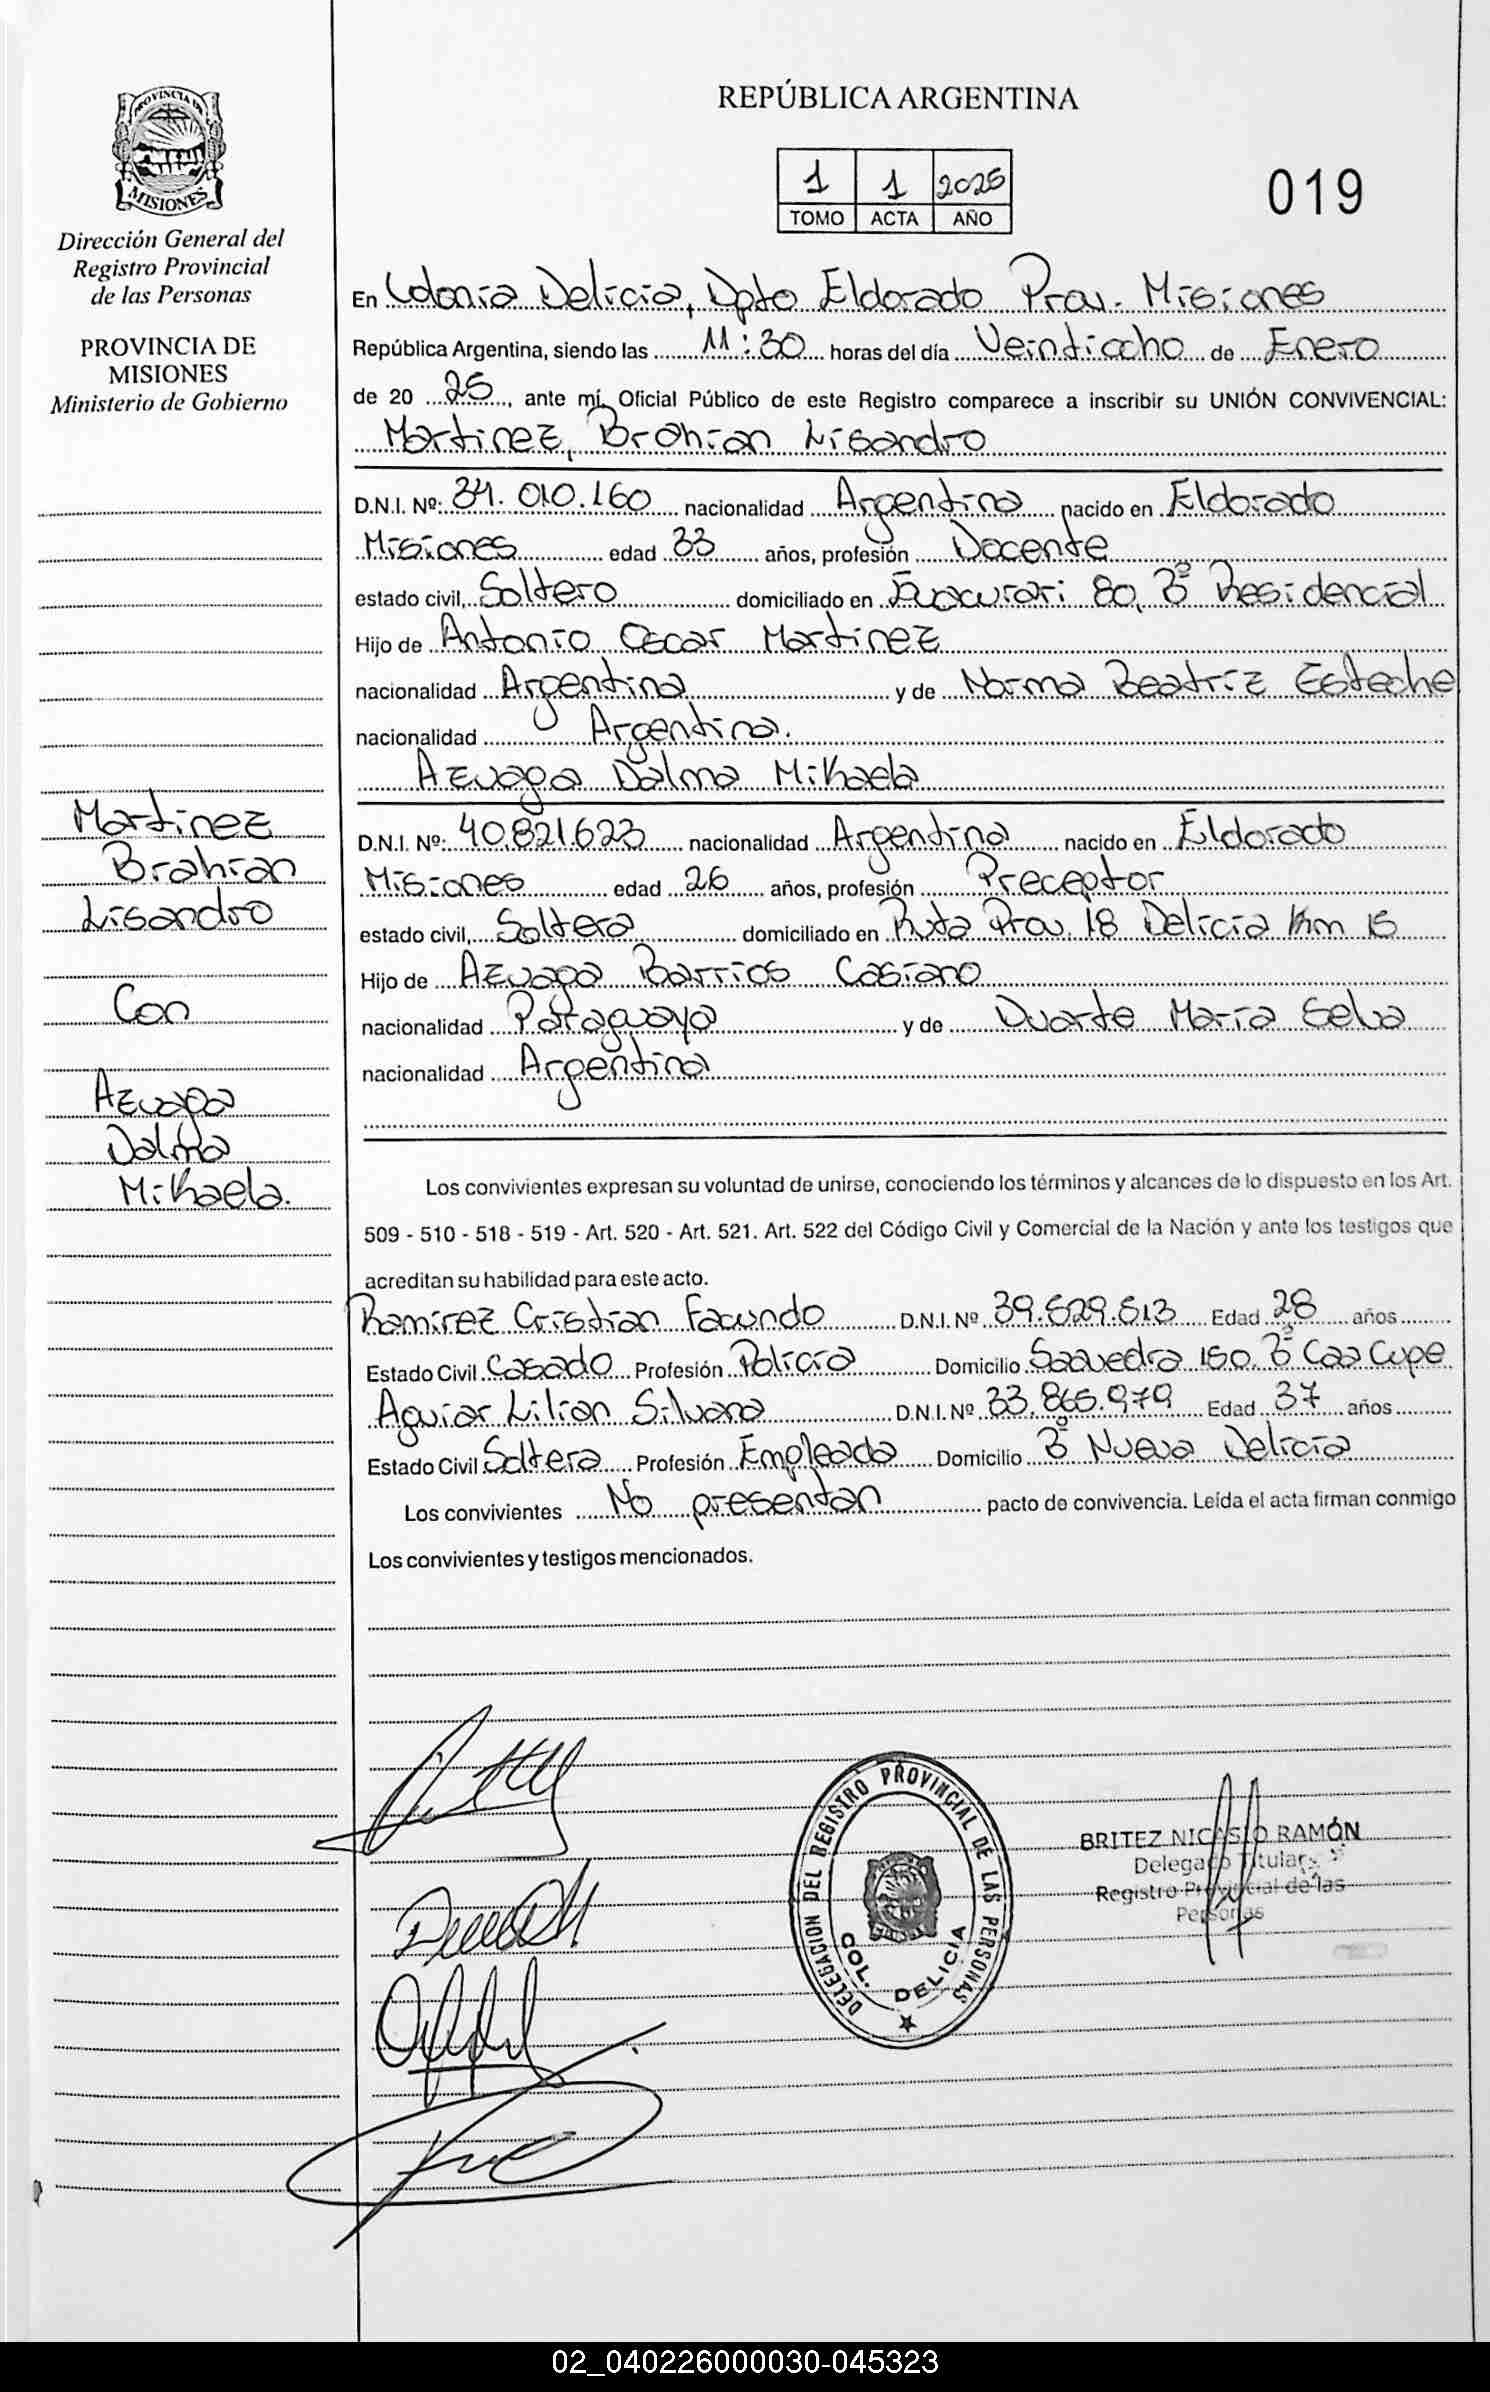 PROVINCIA DE
MISIONES
Dirección General del
Registro Provincial
de las Personas
PROVINCIA DE
MISIONES
Ministerio de Gobierno
Martinez
Brahian
Lisandro
Con
Azuaga
Dalma
Mikaela.
REPÚBLICA ARGENTINA
1 1 2025
TOMO ACTA AÑO
019
En Colonia Delicia, Dpto Eldorado Prov. Misiones
República Argentina, siendo las 11:30 horas del día Veintiocho de Enero
de 20 25, ante mí, Oficial Público de este Registro comparece a inscribir su UNIÓN CONVIVENCIAL:
Martinez, Brahian Lisandro
D.N.I. Nº: 34.010.160 nacionalidad Argentina nacido en Eldorado
Misiones edad 33 años, profesión Docente
estado civil, Soltero domiciliado en 80, Bº Residencial
Hijo de Antonio Oscar Martinez
nacionalidad Argentina y de Norma Beatriz Esteche
nacionalidad Argentina.
Azuaga Dalma Mikaela
D.N.I. Nº: 40.821.623 nacionalidad Argentina nacido en Eldorado
Misiones edad 26 años, profesión Preceptor
estado civil, Soltera domiciliado en Ruta Prov. 18 Delicia Km 15
Hijo de Azuaga Barrios Casiano
nacionalidad Paraguaya y de Duarte Maria Selva
nacionalidad Argentina
Los convivientes expresan su voluntad de unirse, conociendo los términos y alcances de lo dispuesto en los Art.
509 - 510 - 518 - 519 - Art. 520 - Art. 521. Art. 522 del Código Civil y Comercial de la Nación y ante los testigos que
acreditan su habilidad para este acto.
Ramirez Cristian Facundo D.N.I. Nº 39.529.513 Edad 28 años
Estado Civil Casado Profesión Policia Domicilio Saavedra 150. Bº Caa Cupe
Aguiar Lilian Silvana D.N.I. Nº 33.865.979 Edad 37 años
Estado Civil Soltera Profesión Empleada Domicilio Bº Nueva Delicia
Los convivientes No presentan pacto de convivencia. Leída el acta firman conmigo
Los convivientes y testigos mencionados.
DELEGACION DEL REGISTRO PROVINCIAL DE LAS PERSONAS
COL. DELICIA
BRITEZ NICASIO RAMÓN
Delegado Titular
Registro Provincial de las
Personas
02_040226000030-045323